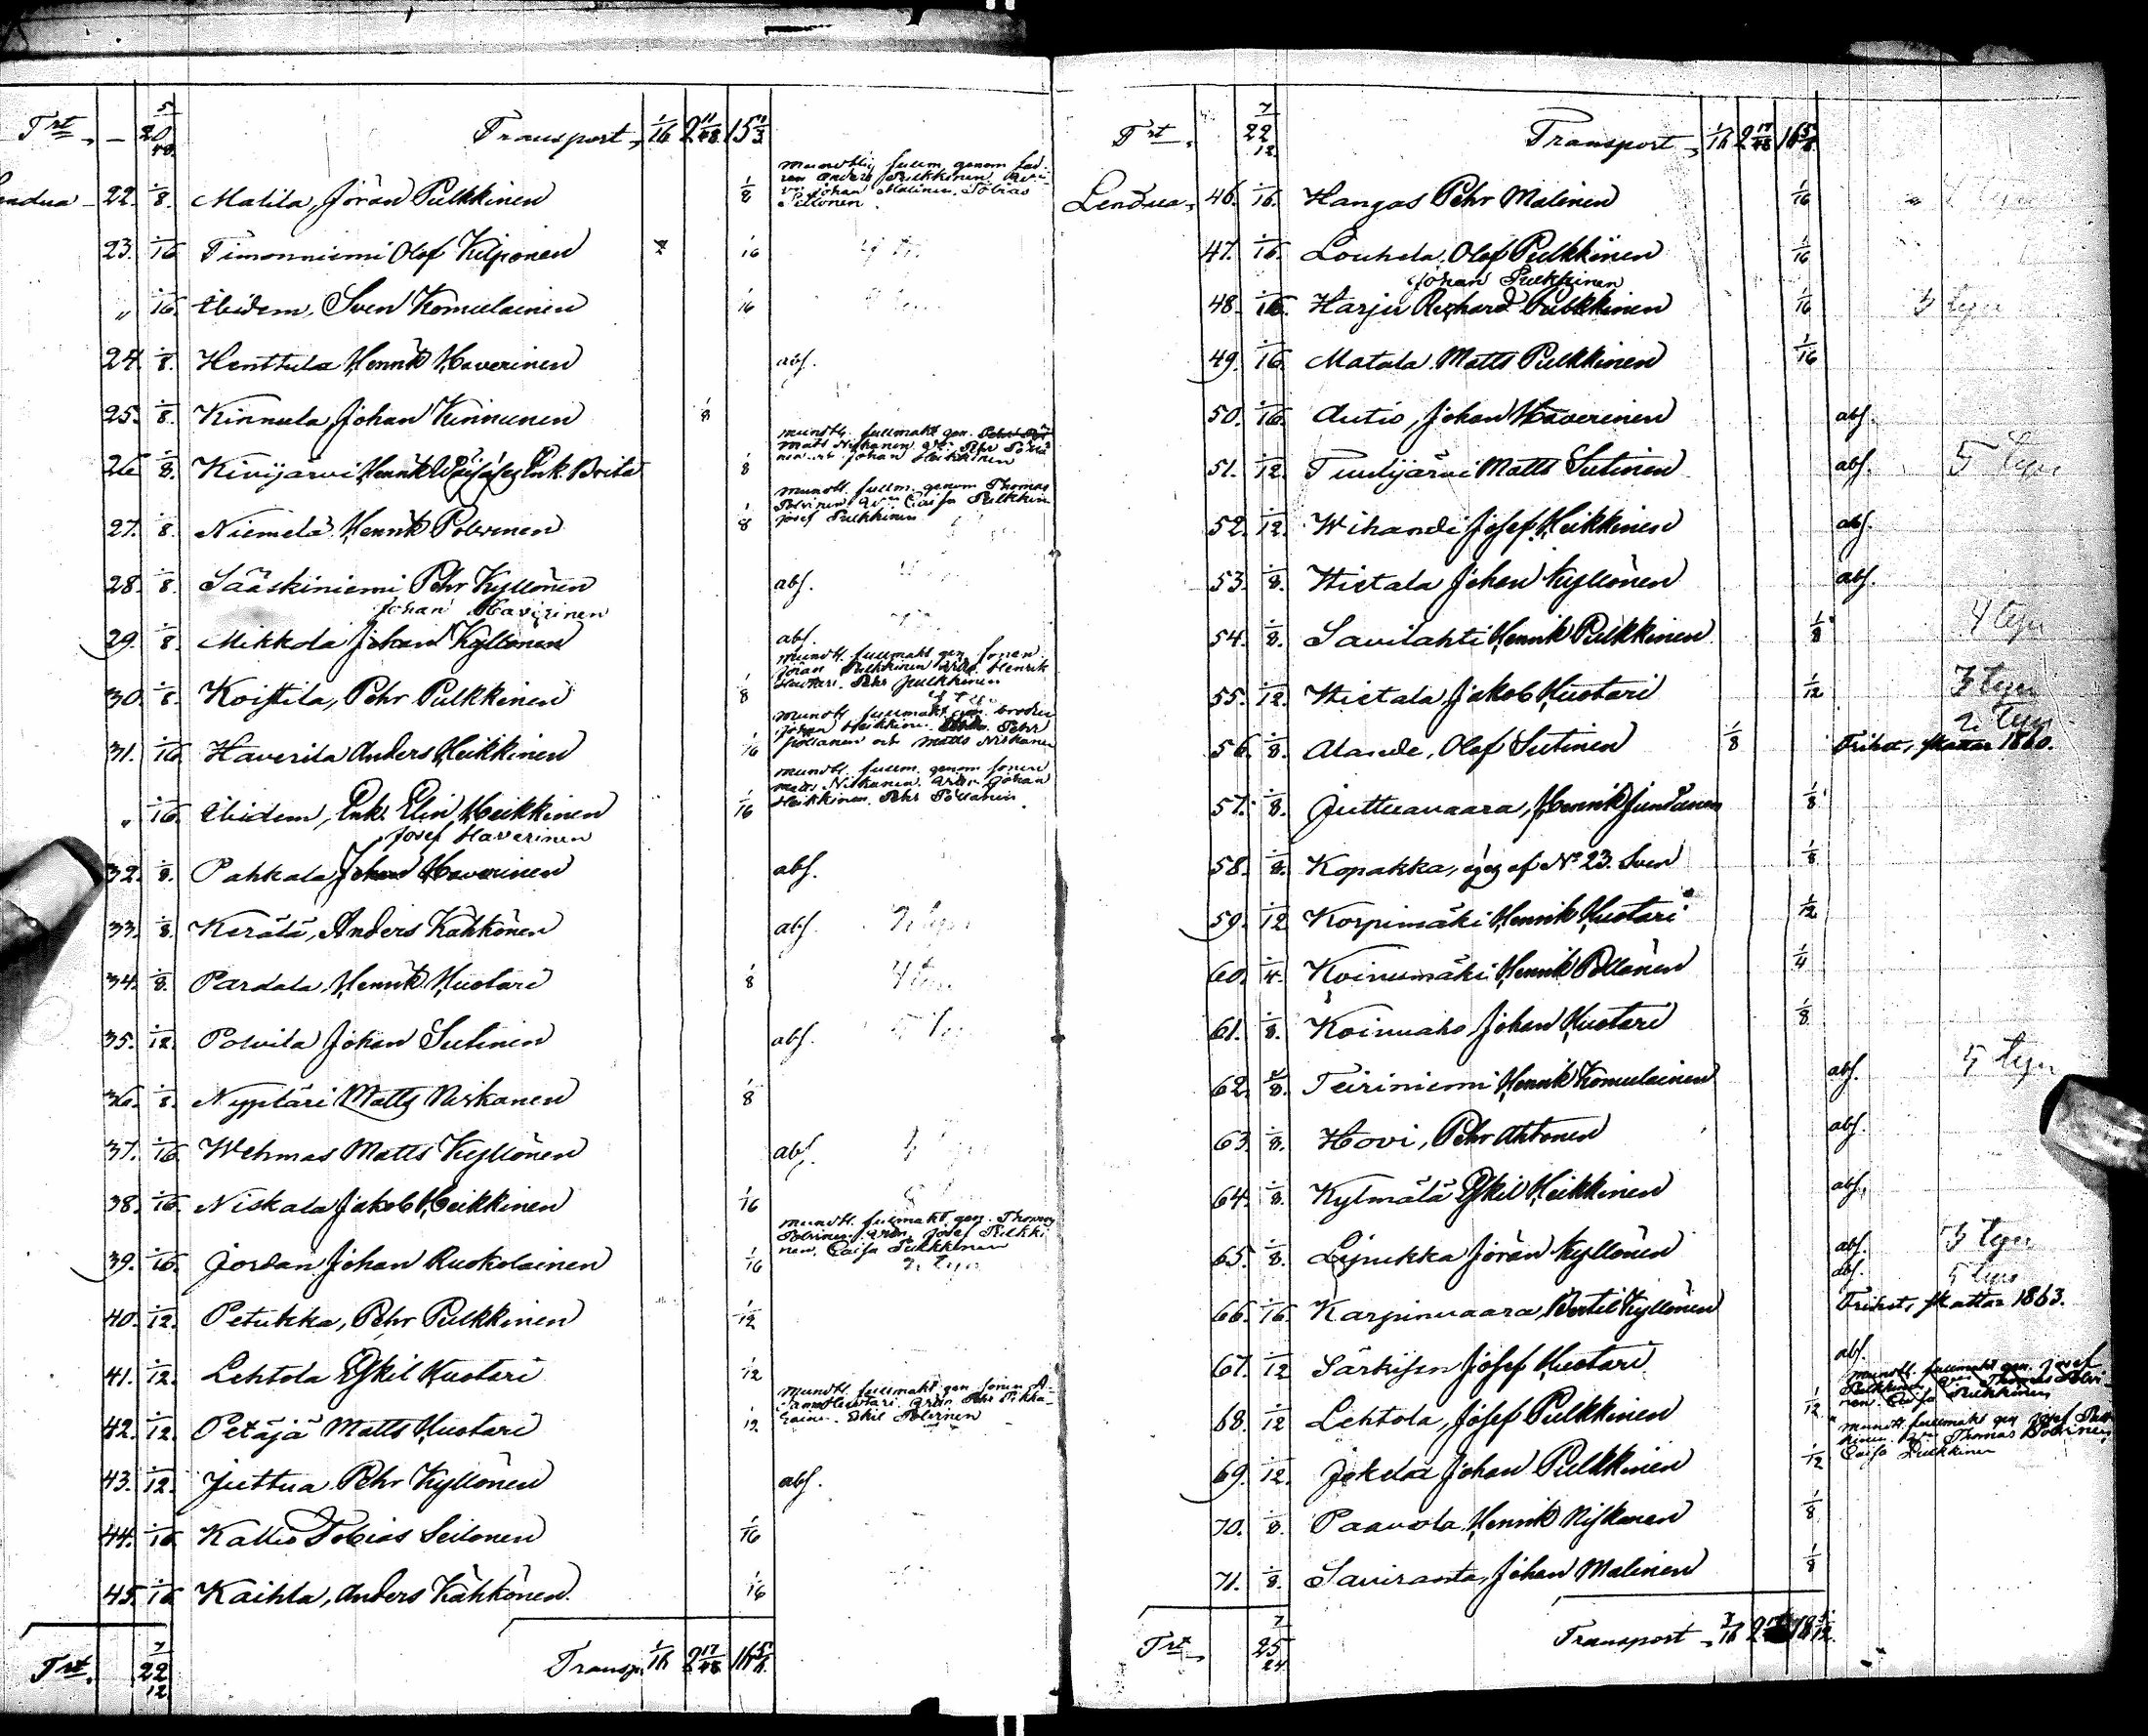 Trt – 5/20/48 Transport 1/16 2 11/48 15
22. 1/8. Matila, Jöran Pulkkinen 1/8
23. 1/16 Timonniemi Olof Kilponen 1/16
" 1/16. Ibidem, Sven Komulainen 1/16
24. 1/8. Henttula Henrik Haverinen abs.
25. 1/8. Kinnula, Johan Kinnunen 1/8
mundtl. fullmakt gen.
Mats Niskanen Pehr
Johan Heikkinen
26 1/8. Kivijärvi, Henrik Enk. Brita 1/8
mundtl. fullm. genom Thomas
Polvinen Caisa Pulkkin
Josef Pulkkinen
27. 1/8. Niemelä Henrik Polvinen 1/8
28. 1/8. Sääskiniemi, Pehr Kyllönen abs.
Johan Haverinen
29. 1/8. Mikkola Johan Kyllönen abs.
mundtl. fullmakt gen. sonen
Jöran Pulkkinen Henrik
Huotari. Pehr Pulkkinen
30. 1/8. Koistila, Pehr Pulkkinen 1/8
mundtl. fullmakt gen. broder
Johan Heikkin. Pehr
och Matts Niskanen
31. 1/16 Haverila Anders Heikkinen 1/16
mundtl. fullm. genom sonen
Matts Niskanen Johan
Heikkinen. Pehr
" 1/16. Ibidem, Enk. Elin Heikkinen 1/16
Josef Haverinen
32. 1/8. Pahkala Johan Haverinen abs.
33. 1/8. Kerälä, Anders Kähkönen abs.
34. 1/8. Pardala, Henrik Huotari 1/8
35. 1/12. Polvila Johan Sutinen abs.
36. 1/8. Nyptäri Matts Niskanen 1/8
37. 1/16 Wehmas Matts Kyllönen abs.
38. 1/16. Niskala Jakob Heikkinen 1/16
mundtl. fullmakt gen. Thomas
Polvinen Josef Pulkki
nen, Caisa Pulkkinen
39. 1/16. Jordan Johan Ruokolainen 1/16
40. 1/12. Petukka, Pehr Pulkkinen 1/12
41. 1/12. Lehtola Eskil Huotari 1/12
mundtl. fullmakt gen sonen
Huotari Pehr
Eskil Polvinen
42. 1/12. Petäjä Matts Huotari 1/12
43. 1/12. Juttua Pehr Kyllönen abs.
44. 1/16 Kallio Tobias Seilonen 1/16
45. 1/16 Kaihla, Anders Kähkönen. 1/16
Trt. 7/22/12 Transp. 1/16 2 17/48 16
Trt. 7/22/12 Transport 1/16 2 17/48 16
Lendua, 46. 1/16. Hangas Pehr Malinen 1/16
47. 1/16. Louhela, Olof Pulkkinen 1/16
Johan Pulkkinen
48. 1/16. Harju Richard Pulkkinen 1/16 3 tyu
49. 1/16. Matala Matts Pulkkinen 1/16
50. 1/16. Autio, Johan Haverinen abs.
51. 1/12. Tuulijärvi Matts Sutinen abs. 5 tyu
52. 1/12. Wihandi Josef Heikkinen abs.
53. 1/8. Hietala Johan Kyllönen abs.
54. 1/8. Savilahti Henrik Pulkkinen 1/8 4 tyu
55. 1/12. Hietala, Jakob Huotari 1/12 3 tyu
2 tyu
56. 1/8. Alande, Olof Sutinen 1/8 Frihet, skattar 1860.
57. 1/8. Juttuavaara, Henrik Juntunen 1/8
58. 1/8. Kopakka, egeg af No 23. Sven 1/8
59. 1/12 Korpimäki Henrik Huotari 1/12
60. 1/4. Koivumäki Henrik Pöllänen 1/4
61. 1/8. Koivuaho Johan Huotari 1/8
62. 1/8. Teiriniemi Henrik Komulainen abs. 5 tyu
63. 1/8. Hovi, Pehr Ahtonen abs.
64. 1/8. Kylmälä Eskil Heikkinen abs.
65. 1/8. Lipukka Jöran Kyllönen abs. 3 tyu
abs. 5 tyu
66. 1/16. Karpinvaara, Bertil Kyllönen Frihet, skattar 1863.
67. 1/12 Särkisen Josef Huotari abs.
mundtl. fullmakt gen. Josef
Pulkkinen Thomas Polvi-
nen. Caisa Pulkkinen
68. 1/12 Lehtola, Josef Pulkkinen 1/12
mundtl. fullmakt gen Josef Pulk-
kinen Thomas Polvinen,
Caisa Pulkkinen
69. 1/12. Jokela Johan Pulkkinen 1/12
70. 1/8. Paavola Henrik Niskanen 1/8
71. 1/8. Saviranta, Johan Malinen 1/8
Trt. 7/25/24 Transport 3/16 2 18 5/12.